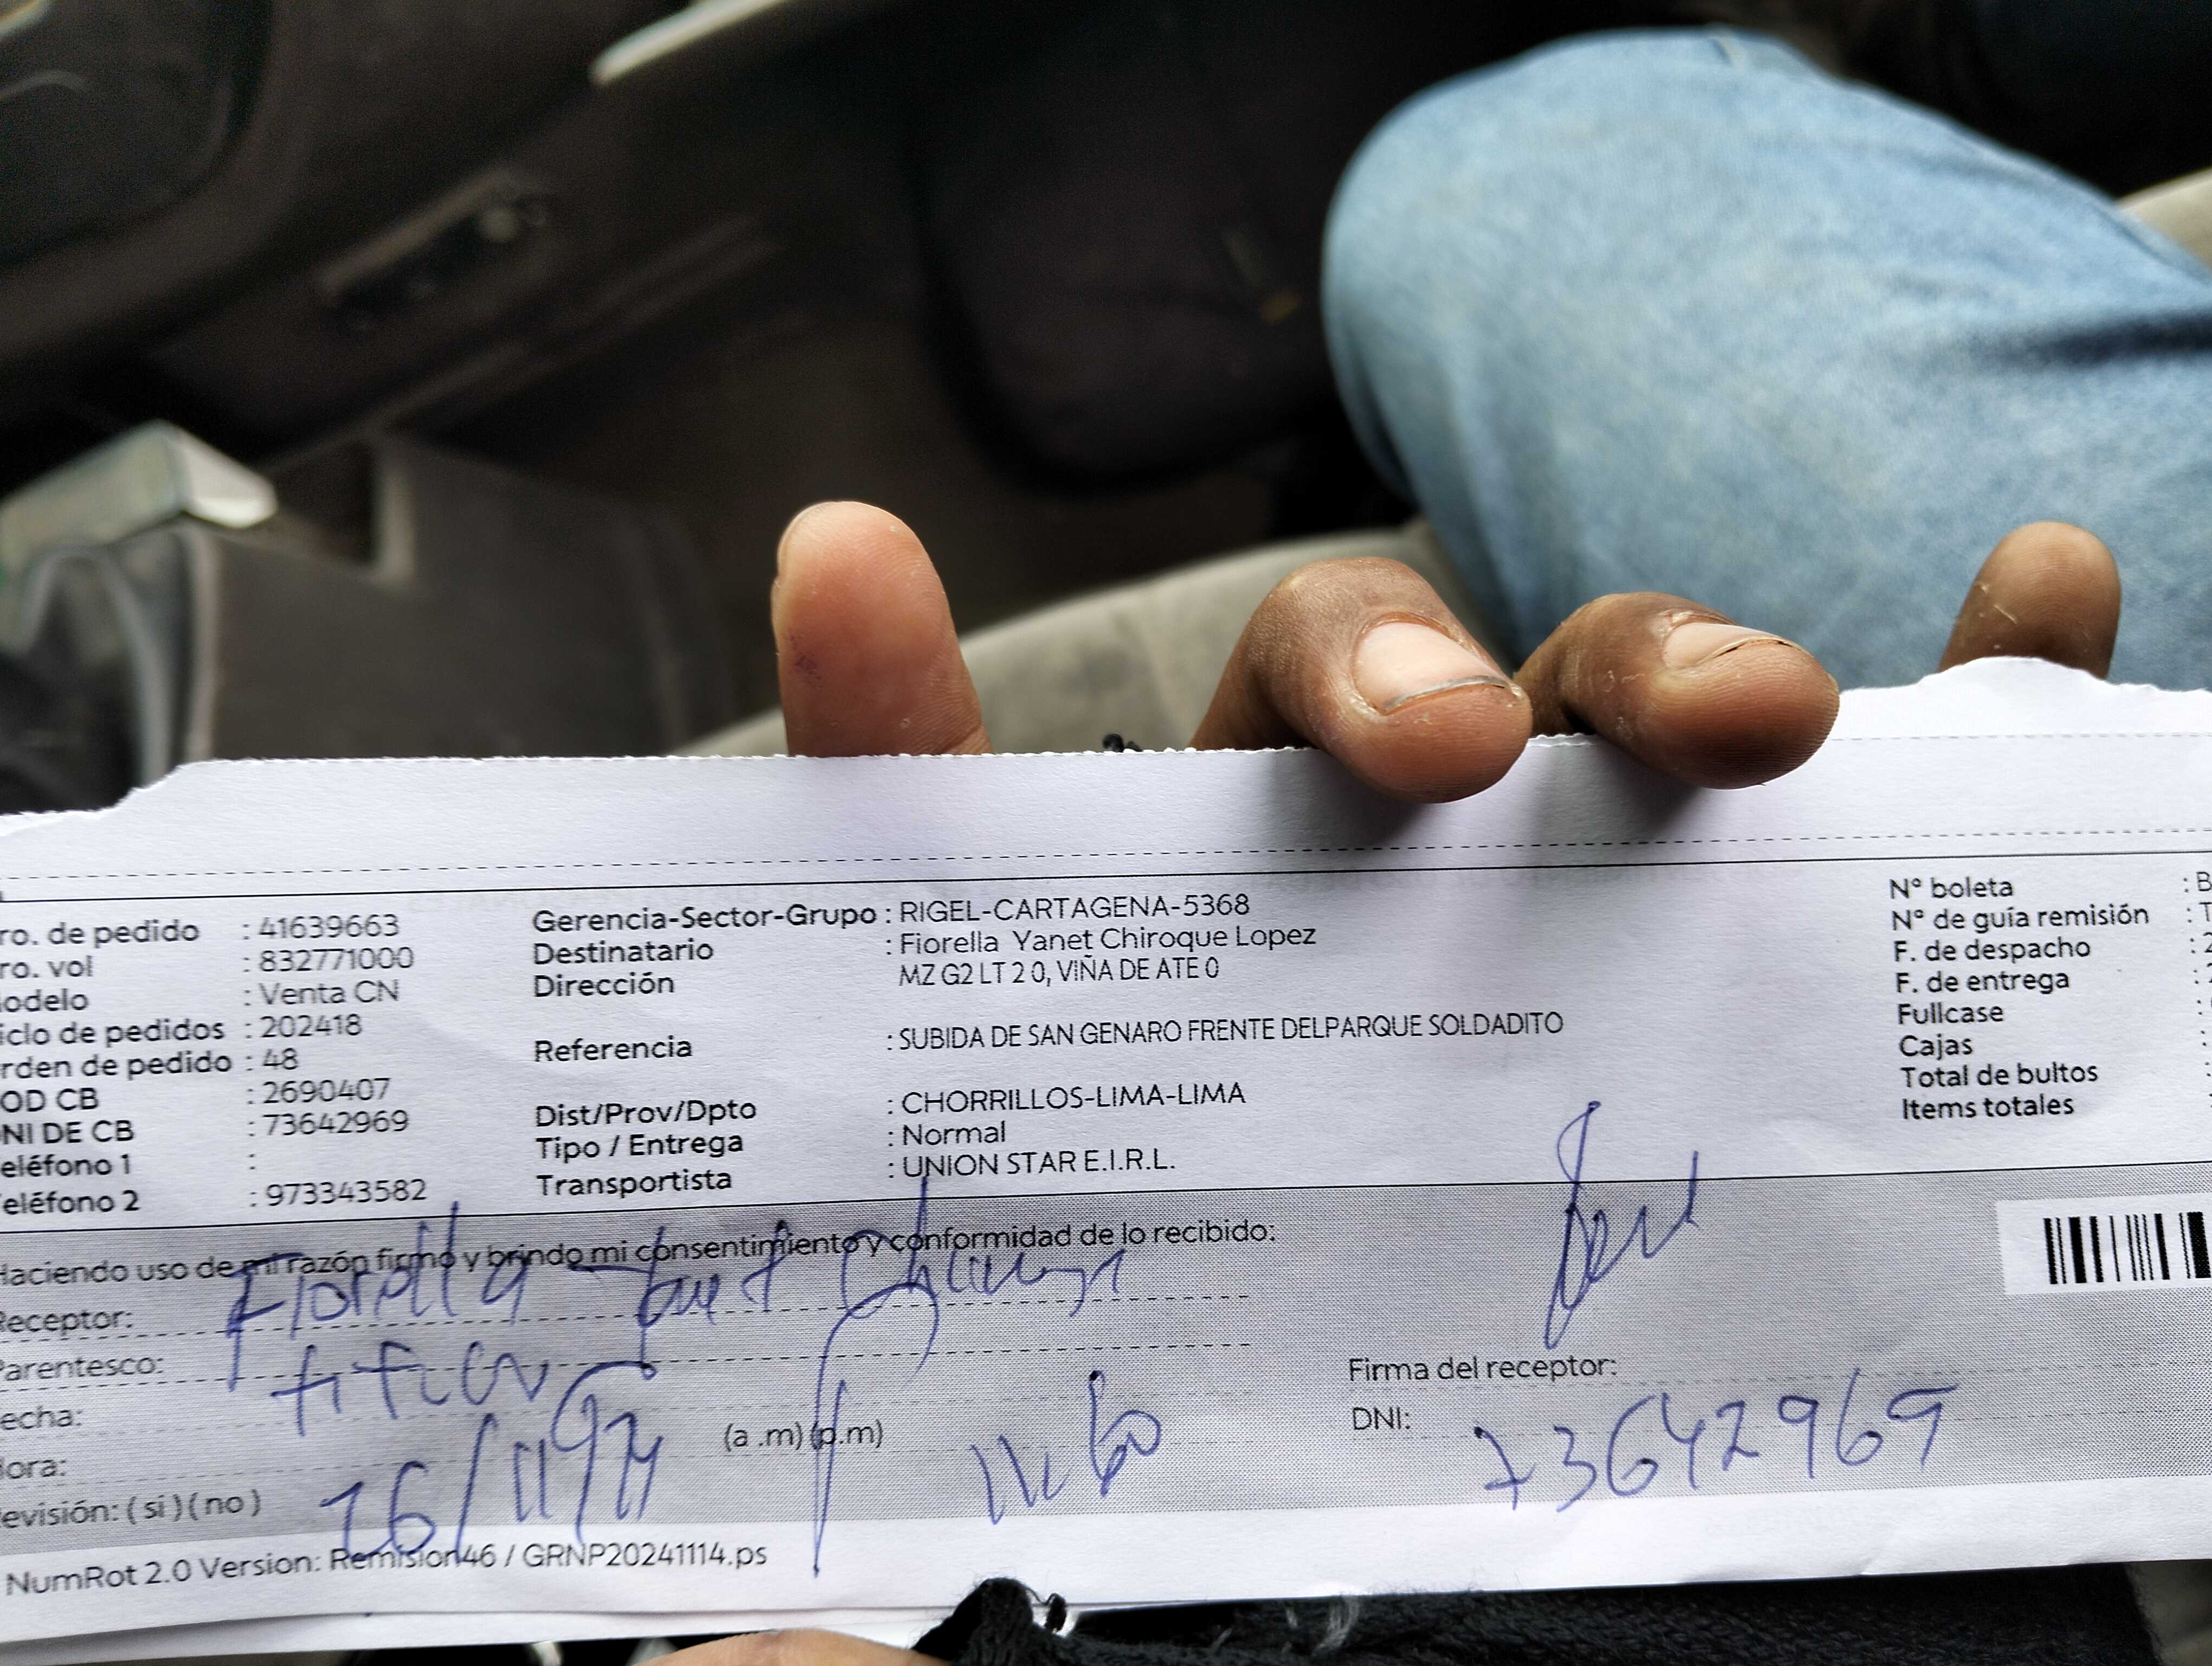 ro. de pedido : 41639663
ro. vol : 832771000
odelo : Venta CN
iclo de pedidos : 202418
rden de pedido : 48
OD CB : 2690407
NI DE CB : 73642969
eléfono 1 :
eléfono 2 : 973343582
Gerencia-Sector-Grupo : RIGEL-CARTAGENA-5368
Destinatario : Fiorella Yanet Chiroque Lopez
Dirección MZ G2 LT 2 0, VIÑA DE ATE 0
Referencia : SUBIDA DE SAN GENARO FRENTE DELPARQUE SOLDADITO
Dist/Prov/Dpto : CHORRILLOS-LIMA-LIMA
Tipo / Entrega : Normal
Transportista : UNION STAR E.I.R.L.
N° boleta : B
N° de guía remisión : T
F. de despacho : 2
F. de entrega : 2
Fullcase :
Cajas :
Total de bultos :
Items totales :
Haciendo uso de mi razón firmo y brindo mi consentimiento y conformidad de lo recibido:
Receptor: Fiorella
Parentesco:
echa:
ora: (a .m) (p.m)
evisión: ( si ) ( no )
Firma del receptor:
DNI: 73642969
NumRot 2.0 Version: Remision46 / GRNP20241114.ps